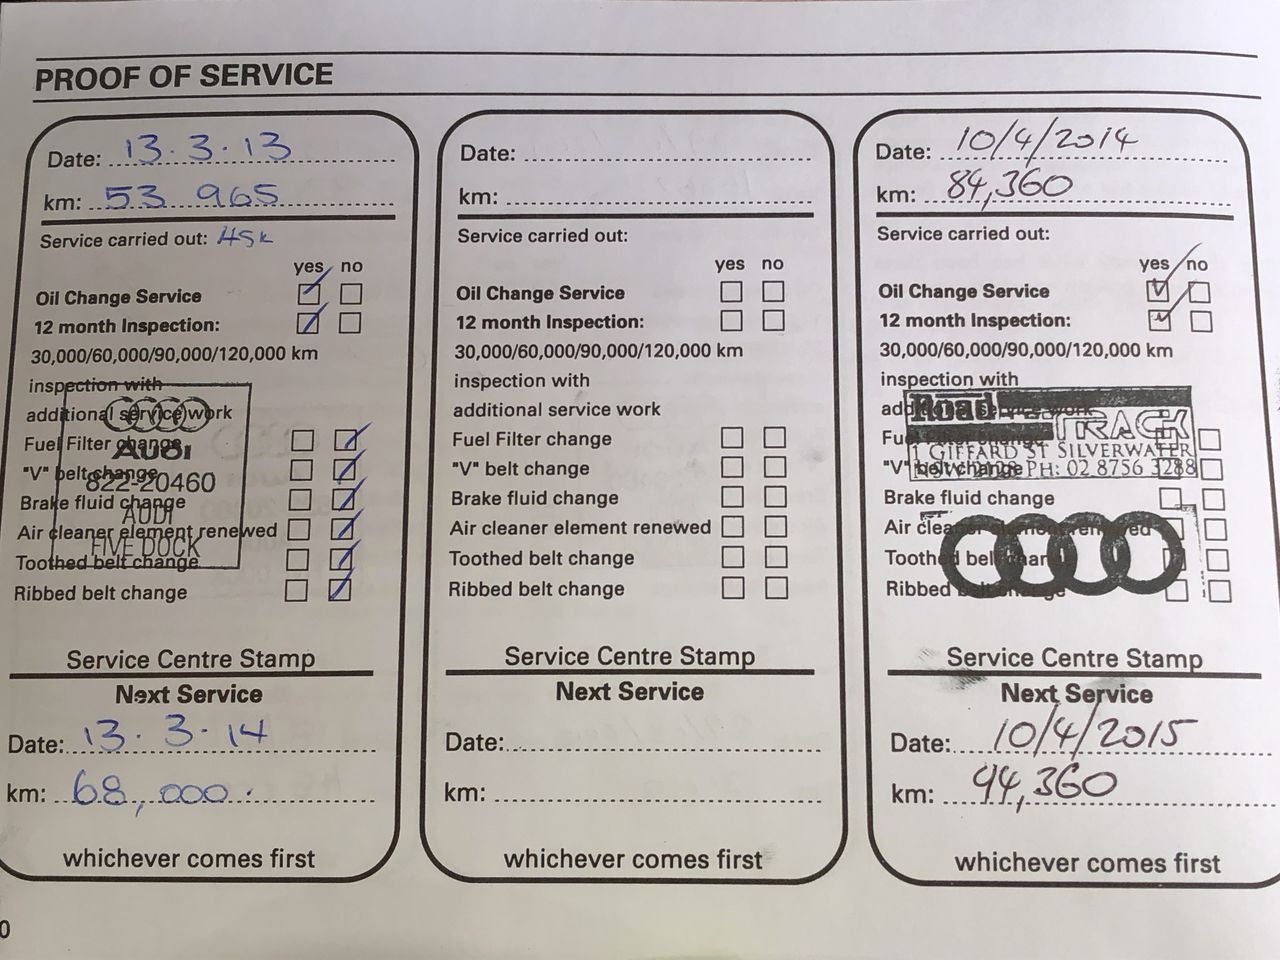 PROOF OF SERVICE
Date: 13.3.13
km: 53 965
Service carried out: 45k
yes no
Oil Change Service
12 month Inspection:
30,000/60,000/90,000/120,000 km
inspection with
additional service work
Fuel Filter change
"V" belt change
Brake fluid change
Air cleaner element renewed
Toothed belt change
Ribbed belt change
Audi
822-20460
AUDI
FIVE DOCK
Service Centre Stamp
Next Service
Date: 13.3.14
km: 68,000.
whichever comes first
Date:
km:
Service carried out:
yes no
Oil Change Service
12 month Inspection:
30,000/60,000/90,000/120,000 km
inspection with
additional service work
Fuel Filter change
"V" belt change
Brake fluid change
Air cleaner element renewed
Toothed belt change
Ribbed belt change
Service Centre Stamp
Next Service
Date:
km:
whichever comes first
Date: 10/4/2014
km: 84,360
Service carried out:
yes no
Oil Change Service
12 month Inspection:
30,000/60,000/90,000/120,000 km
inspection with
additional service work
Fuel Filter change
"V" belt change
Brake fluid change
Air cleaner element renewed
Toothed belt change
Ribbed belt change
Road
TRACK
1 GIFFARD ST SILVERWATER
NSW PH: 02 8756 3288
Service Centre Stamp
Next Service
Date: 10/4/2015
km: 94,360
whichever comes first
0